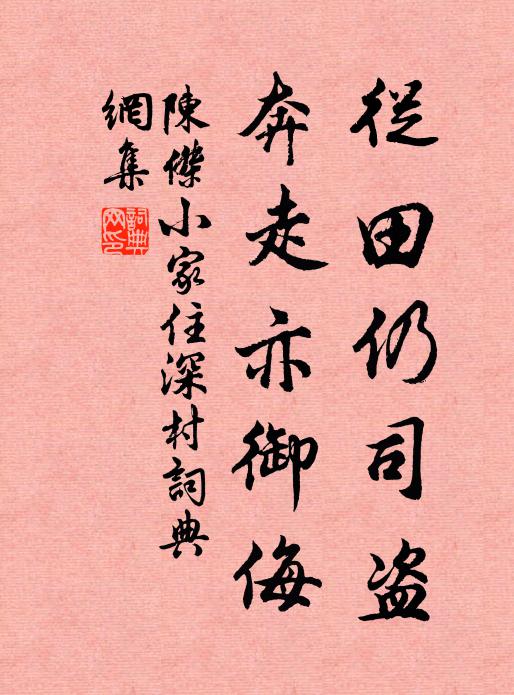 從田仍司盗
奔走亦御侮
陳傑小家住深村詞典
網集
詞典
网印